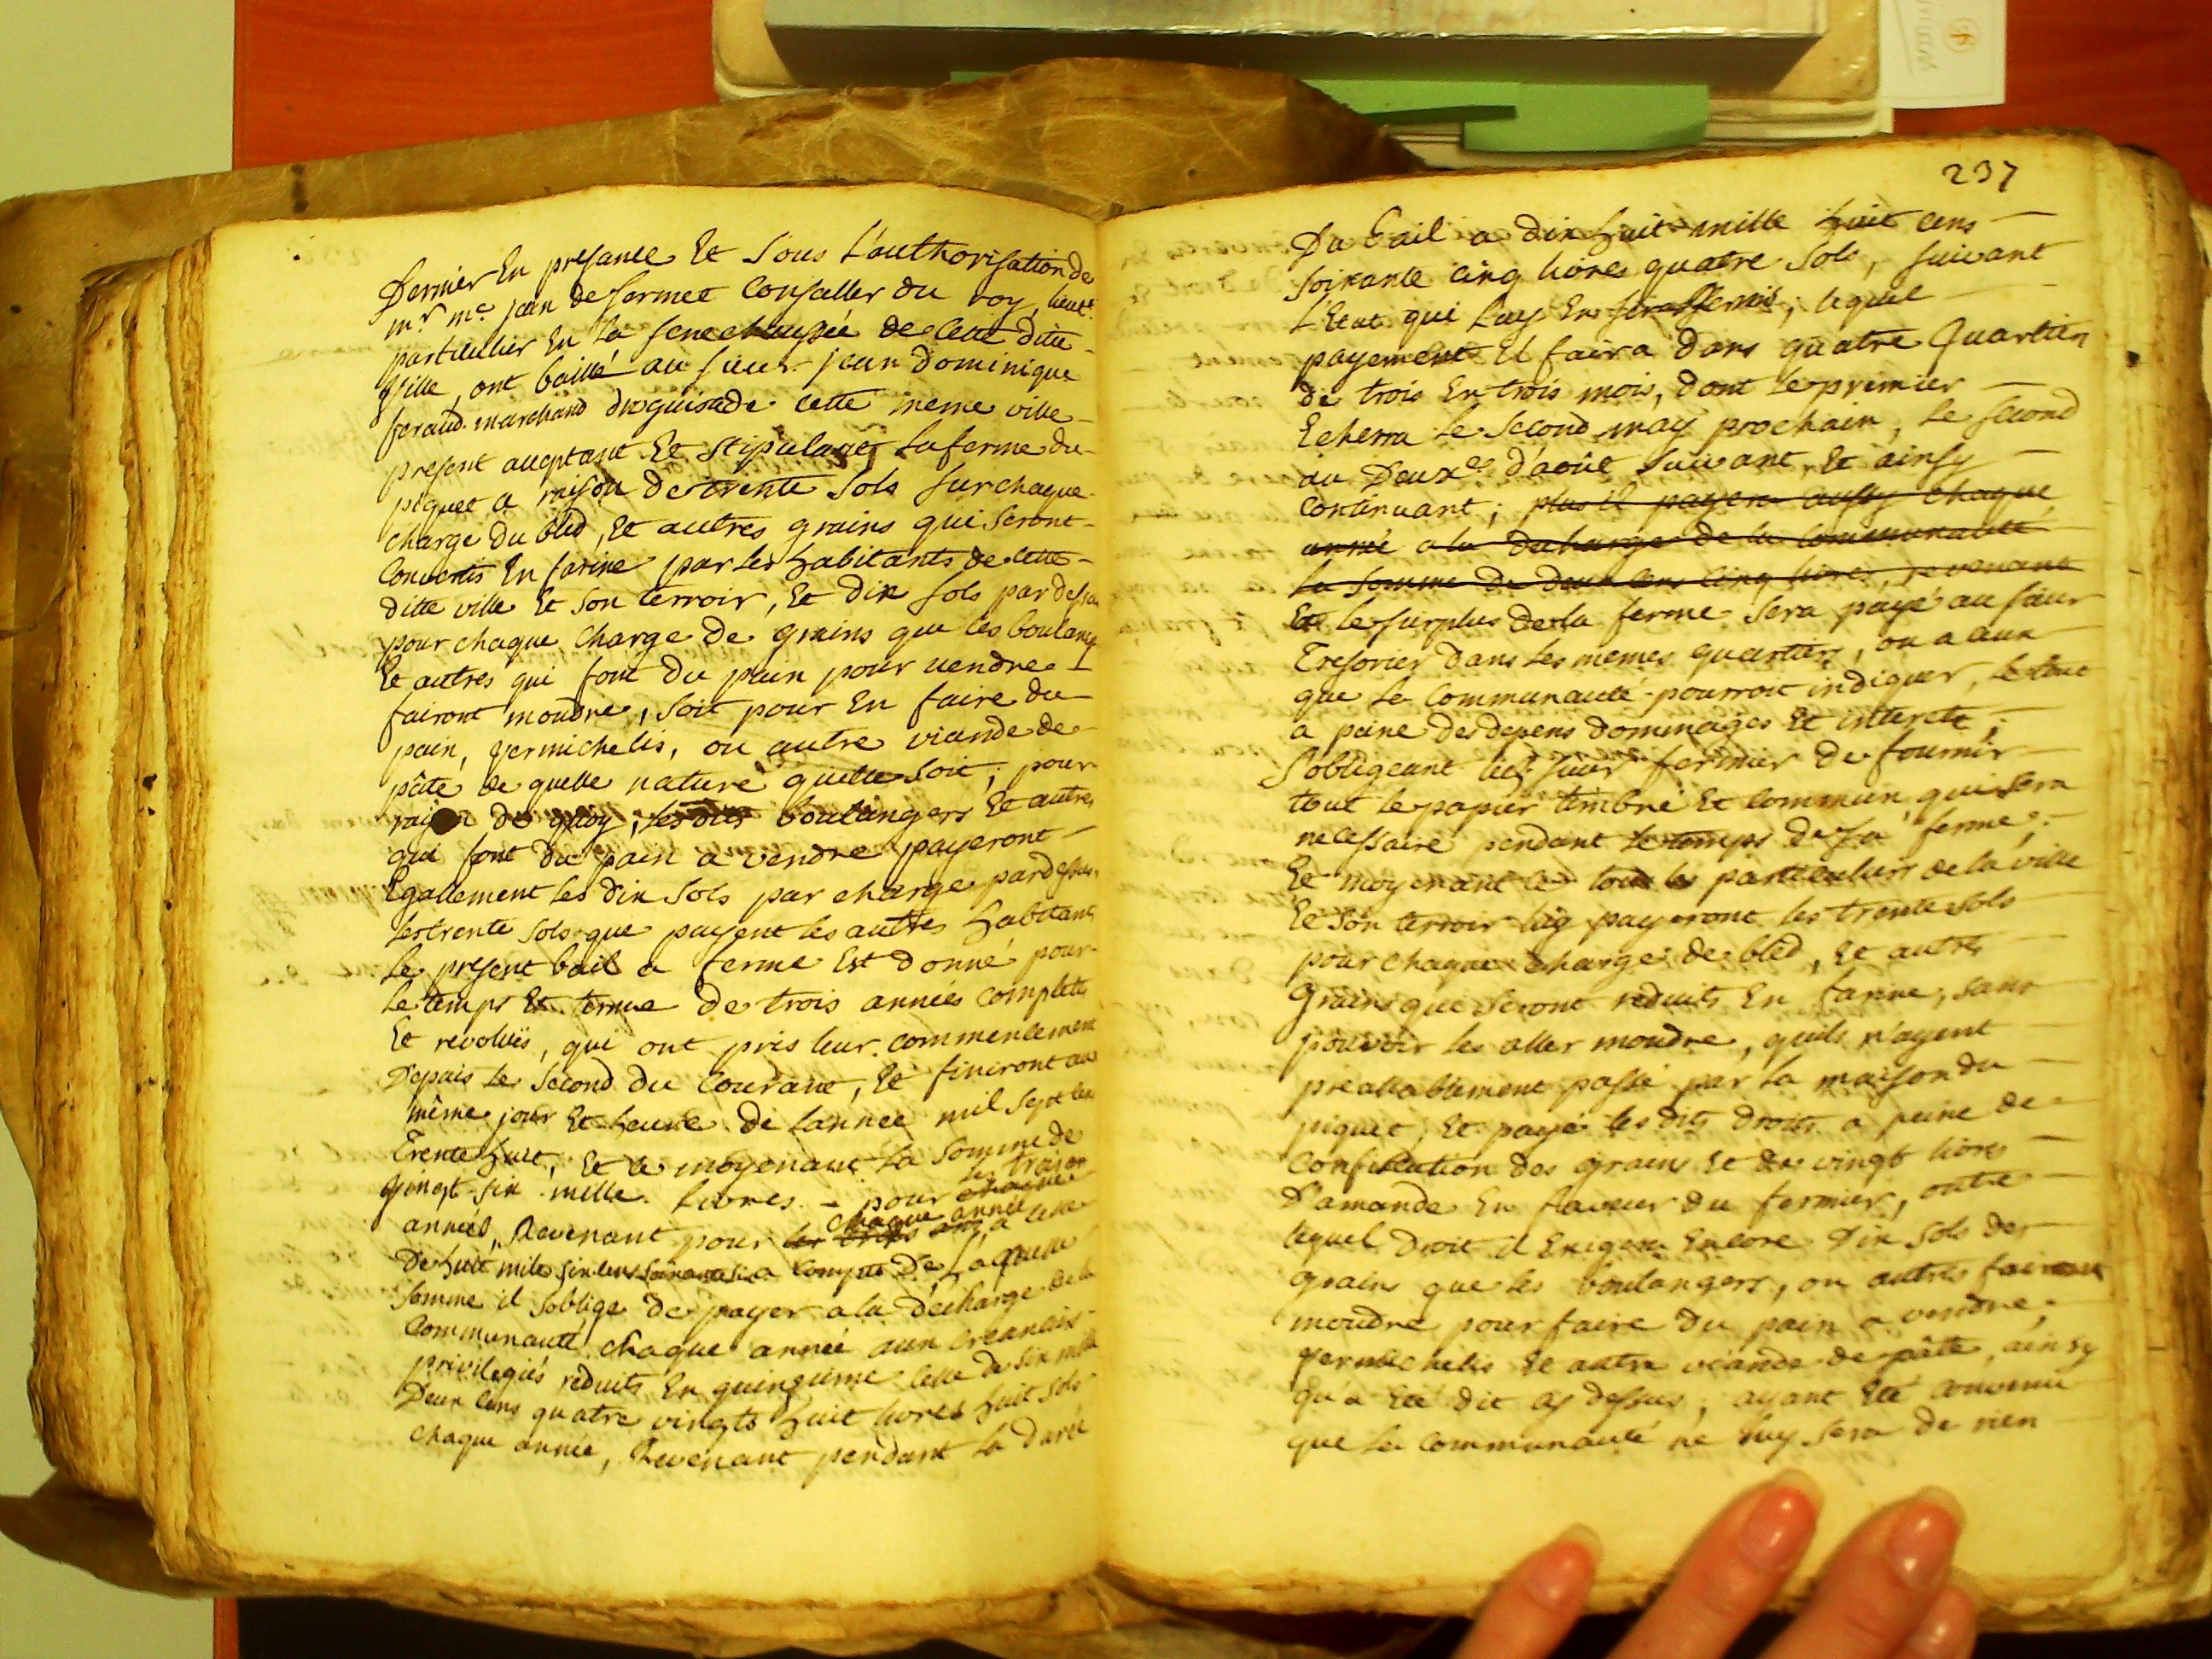 Dernier En presance Et Sous L'authorisation de
mr. me. jean de fermee Conseiller du roy, lieut.
particulier En la senechaussée de Cette ditte
Ville, ont baillé au sieur jean dominique
feraud marchand droguiste de cette meme ville
present acceptant Et Stipulant La ferme du
piquet a raison de trente Sols sur chaque
charge du bled, Et autres grains qui seront
Convertis En farine par les habitants de cette
ditte ville Et Son terroir, Et dix sols par dessus
pour chaque Charge de grains que les boulangers
Et autres qui font du pain pour vendre
fairont moudre, Soit pour En faire du
pain, vermichelis, ou autre viande de
pâte de quelle nature quelle soit; pour
raison de quoy, les dits boulangers Et autres
qui font du pain a vendre payeront
Egallement les dix Sols par charge par dessus
les trente sols que payent les autres habitants
Le present bail a ferme Est donné pour
Le temps Et terme de trois années complettes
Et revolües, qui ont pris leur commencement
Depuis le Second du Courant, Et finiront au
même jour Et heure de Lannée mil Sept cens
Trente huit, Et a moyenant La Somme de
Vingt six mille Livres pour chaque les trois
années, Revenant pour les trois ans chaque année a celle
De huit mille six cens soixante six a Compte De Laquelle
Somme il soblige de payer a la décharge de la
Communauté chaque année aux Creanciers
privilegiés reduits En quinzieme celle de six mille
Deux cens quatre vingts huit livres huit sols
chaque année, Revenant pendant la durée
237
Du bail a dix huit mille huit cens
soixante cinq livres quatre Sols, suivant
L'Etat qui Luy En sera remis, lequel
payement il faira dans quatre Quartiers
de trois En trois mois, dont le premier
Echerra le Second may prochain, le second
au Deuxe. d'août suivant, Et ainsy
Continuant; plus il payera aussy chaque
année a la decharge de la communauté
la Somme de deux cens cinq livres, revenant
Et le surplus de la ferme sera payé au sieur
Tresorier dans les memes quartiers, ou a ceux
que la Communauté pourroit indiquer, le tout
a peine de depens dommages Et interets;
S'obligeant led. sieur fermier de fournir
tout le papier timbré Et Commun, qui sera
necessaire pendant le temps de sa ferme;
Et moyenant ce tous les particuliers de la ville
Et Son terroir luy payeront les trente sols
pour chaque charge de bléd, Et autres
Grains que Seront reduits En farine, sans
pouvoir les aller moudre, quils n'ayent
preallablement passé par la maison du
piquet, Et payé les dits droits a peine de
Confiscation des grains Et des vingt livres
D'amande En faveur du fermier, outre
lequel droit il Exigera Encore Dix Sols des
grains que les boulangers, ou autres fairont
moudre pour faire du pain a vendre,
vermichelis Et autre viande de pâte, ainsy
qu'a Eté dit cy dessus; ayant Eté convenu
que la Communauté ne luy sera de rien